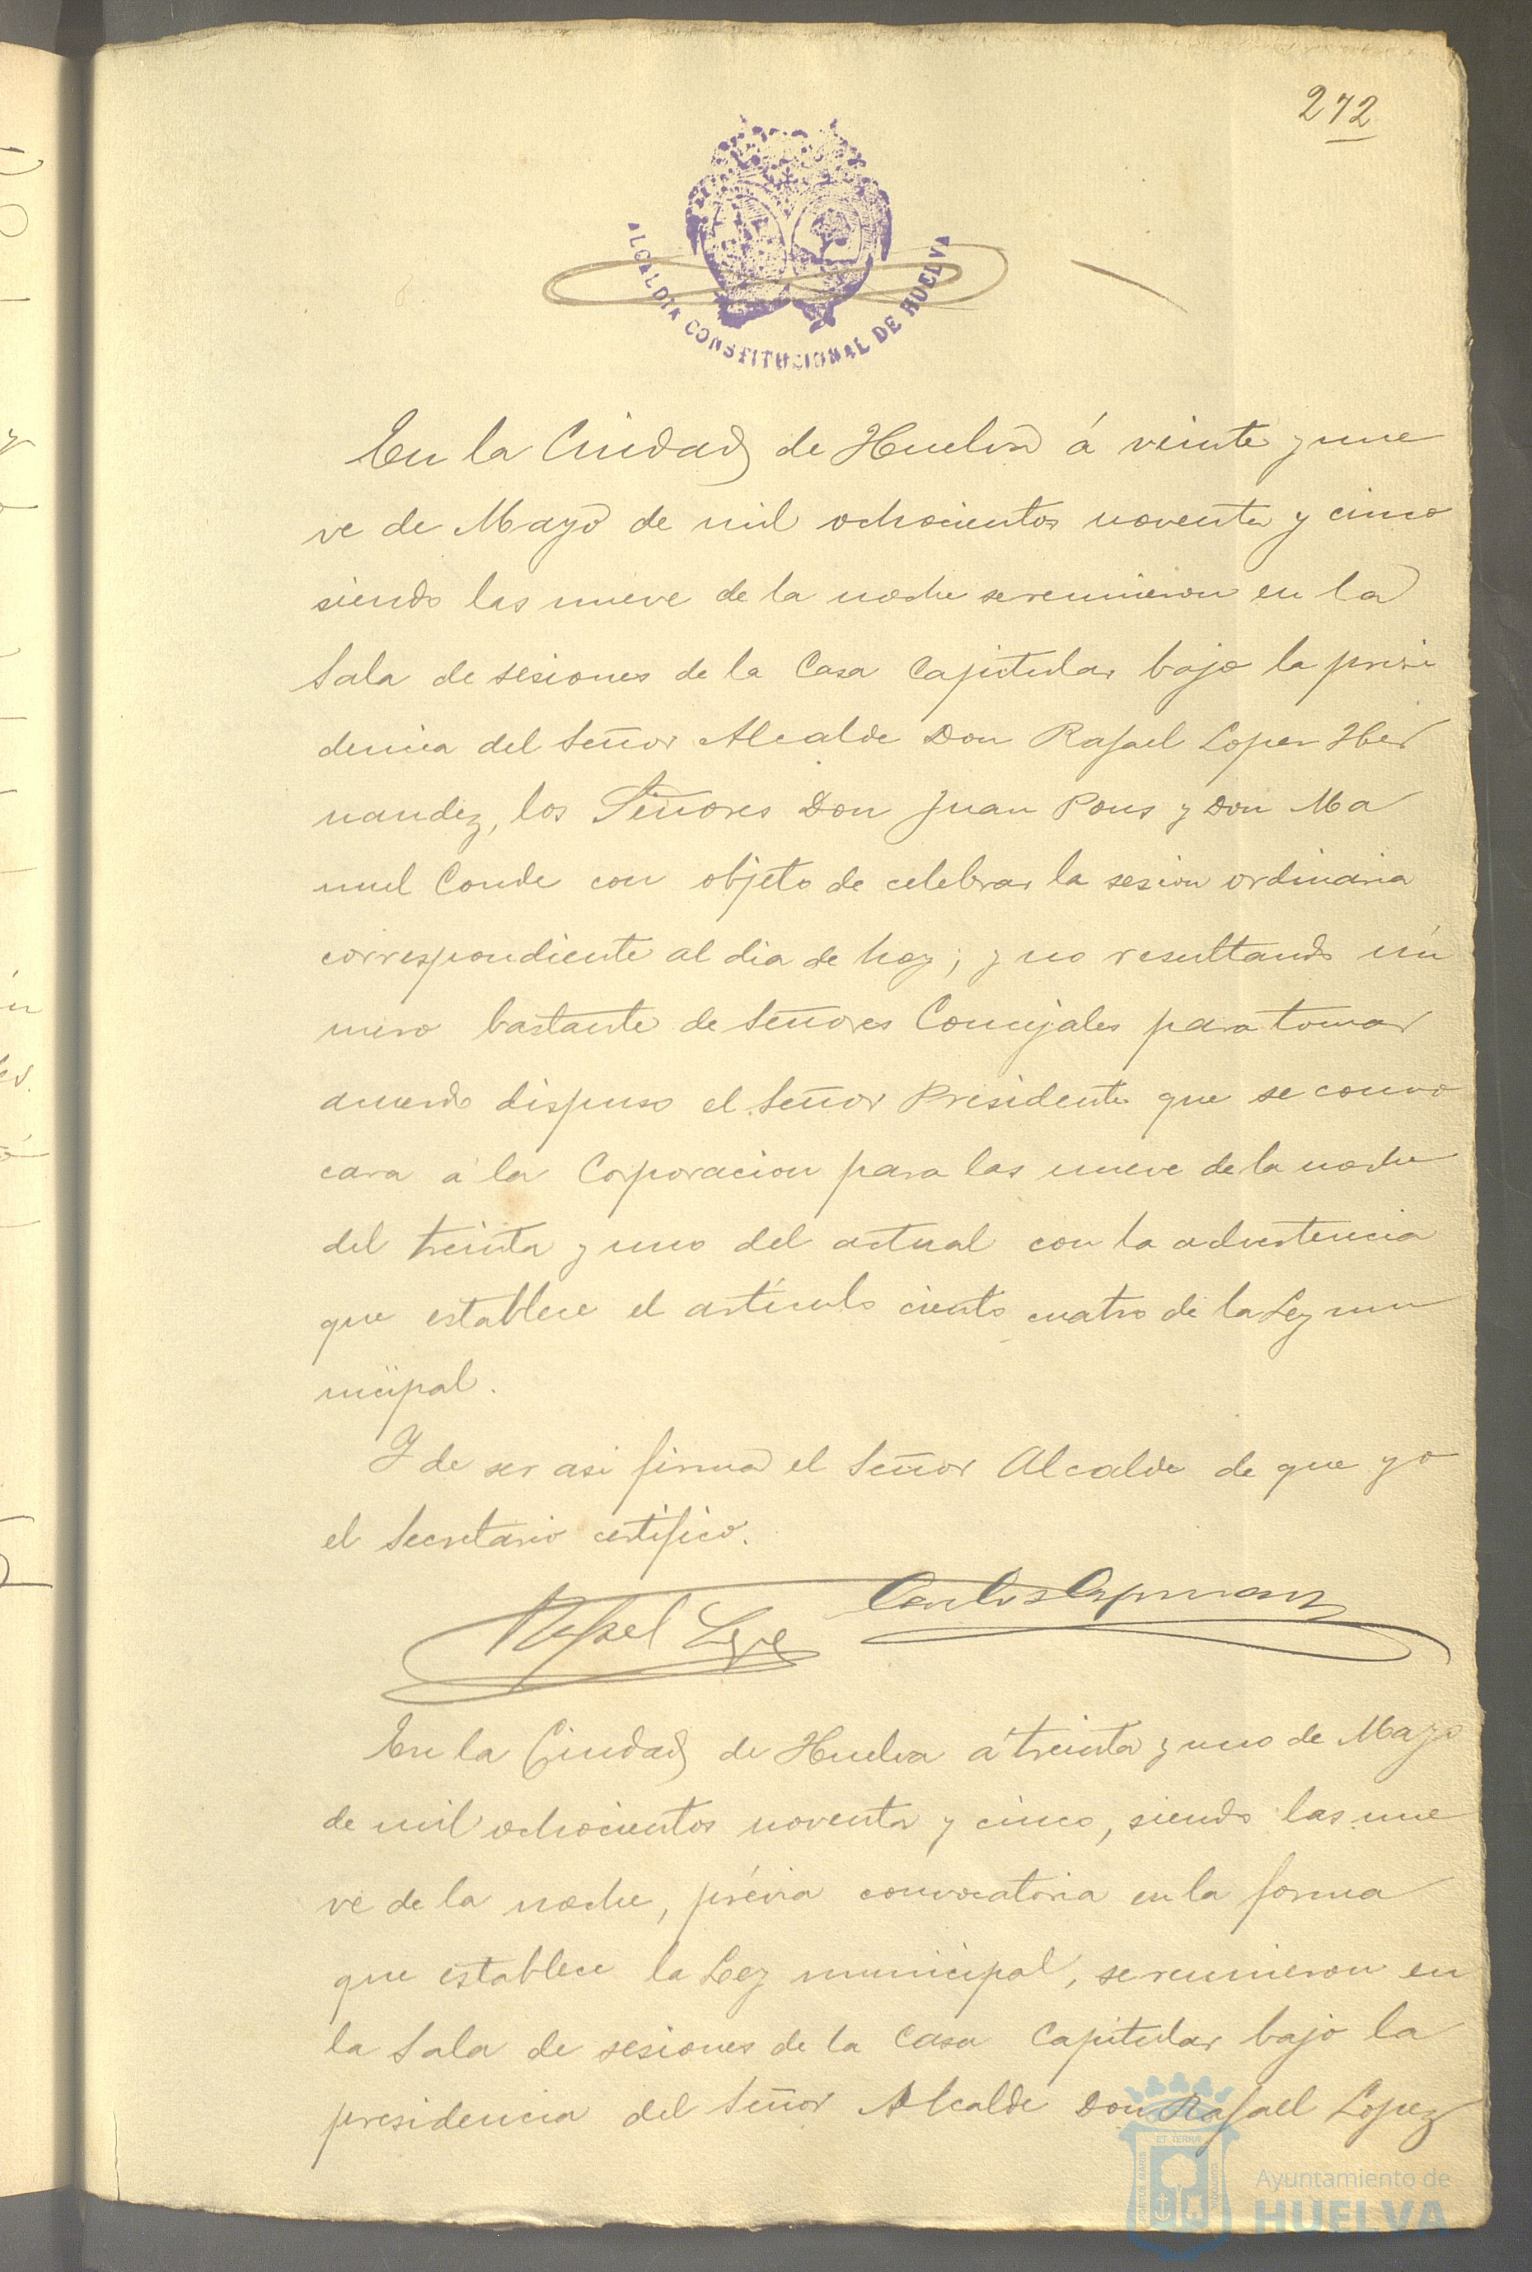 272
ALCALDIA CONSTITUCIONAL DE HUELVA
En la Ciudad de Huelva á veinte y nue
ve de Mayo de mil ochocientos noventa y cinco
siendo las nueve de la noche se reunieron en la
Sala de sesiones de la Casa Capitular bajo la presi
dencia del Señor Alcalde Don Rafael Lopez Her
nandez, los Señores Don Juan Pons y Don Ma
nuel Conde con objeto de celebrar la sesion ordinaria
correspondiente al dia de hoy; y no resultando nú
mero bastante de Señores Concejales para tomar
acuerdo dispuso el Señor Presidente que se convo
cara á la Corporacion para las nueve de la noche
del treinta y uno del actual con la advertencia
que establece el artículo ciento cuatro de la Ley mu
nicipal.
Y de ser asi firma el Señor Alcalde de que yo
el Secretario certifico.
Rafael Lopez
Carlos
En la Ciudad de Huelva á treinta y uno de Mayo
de mil ochocientos noventa y cinco, siendo las nue
ve de la noche, prévia convocatoria en la forma
que establece la Ley municipal, se reunieron en
la Sala de sesiones de la Casa Capitular bajo la
presidencia del Señor Alcalde Don Rafael Lopez
PORTUS MARIS ET TERRAE CUSTODIA
Ayuntamiento de
HUELVA